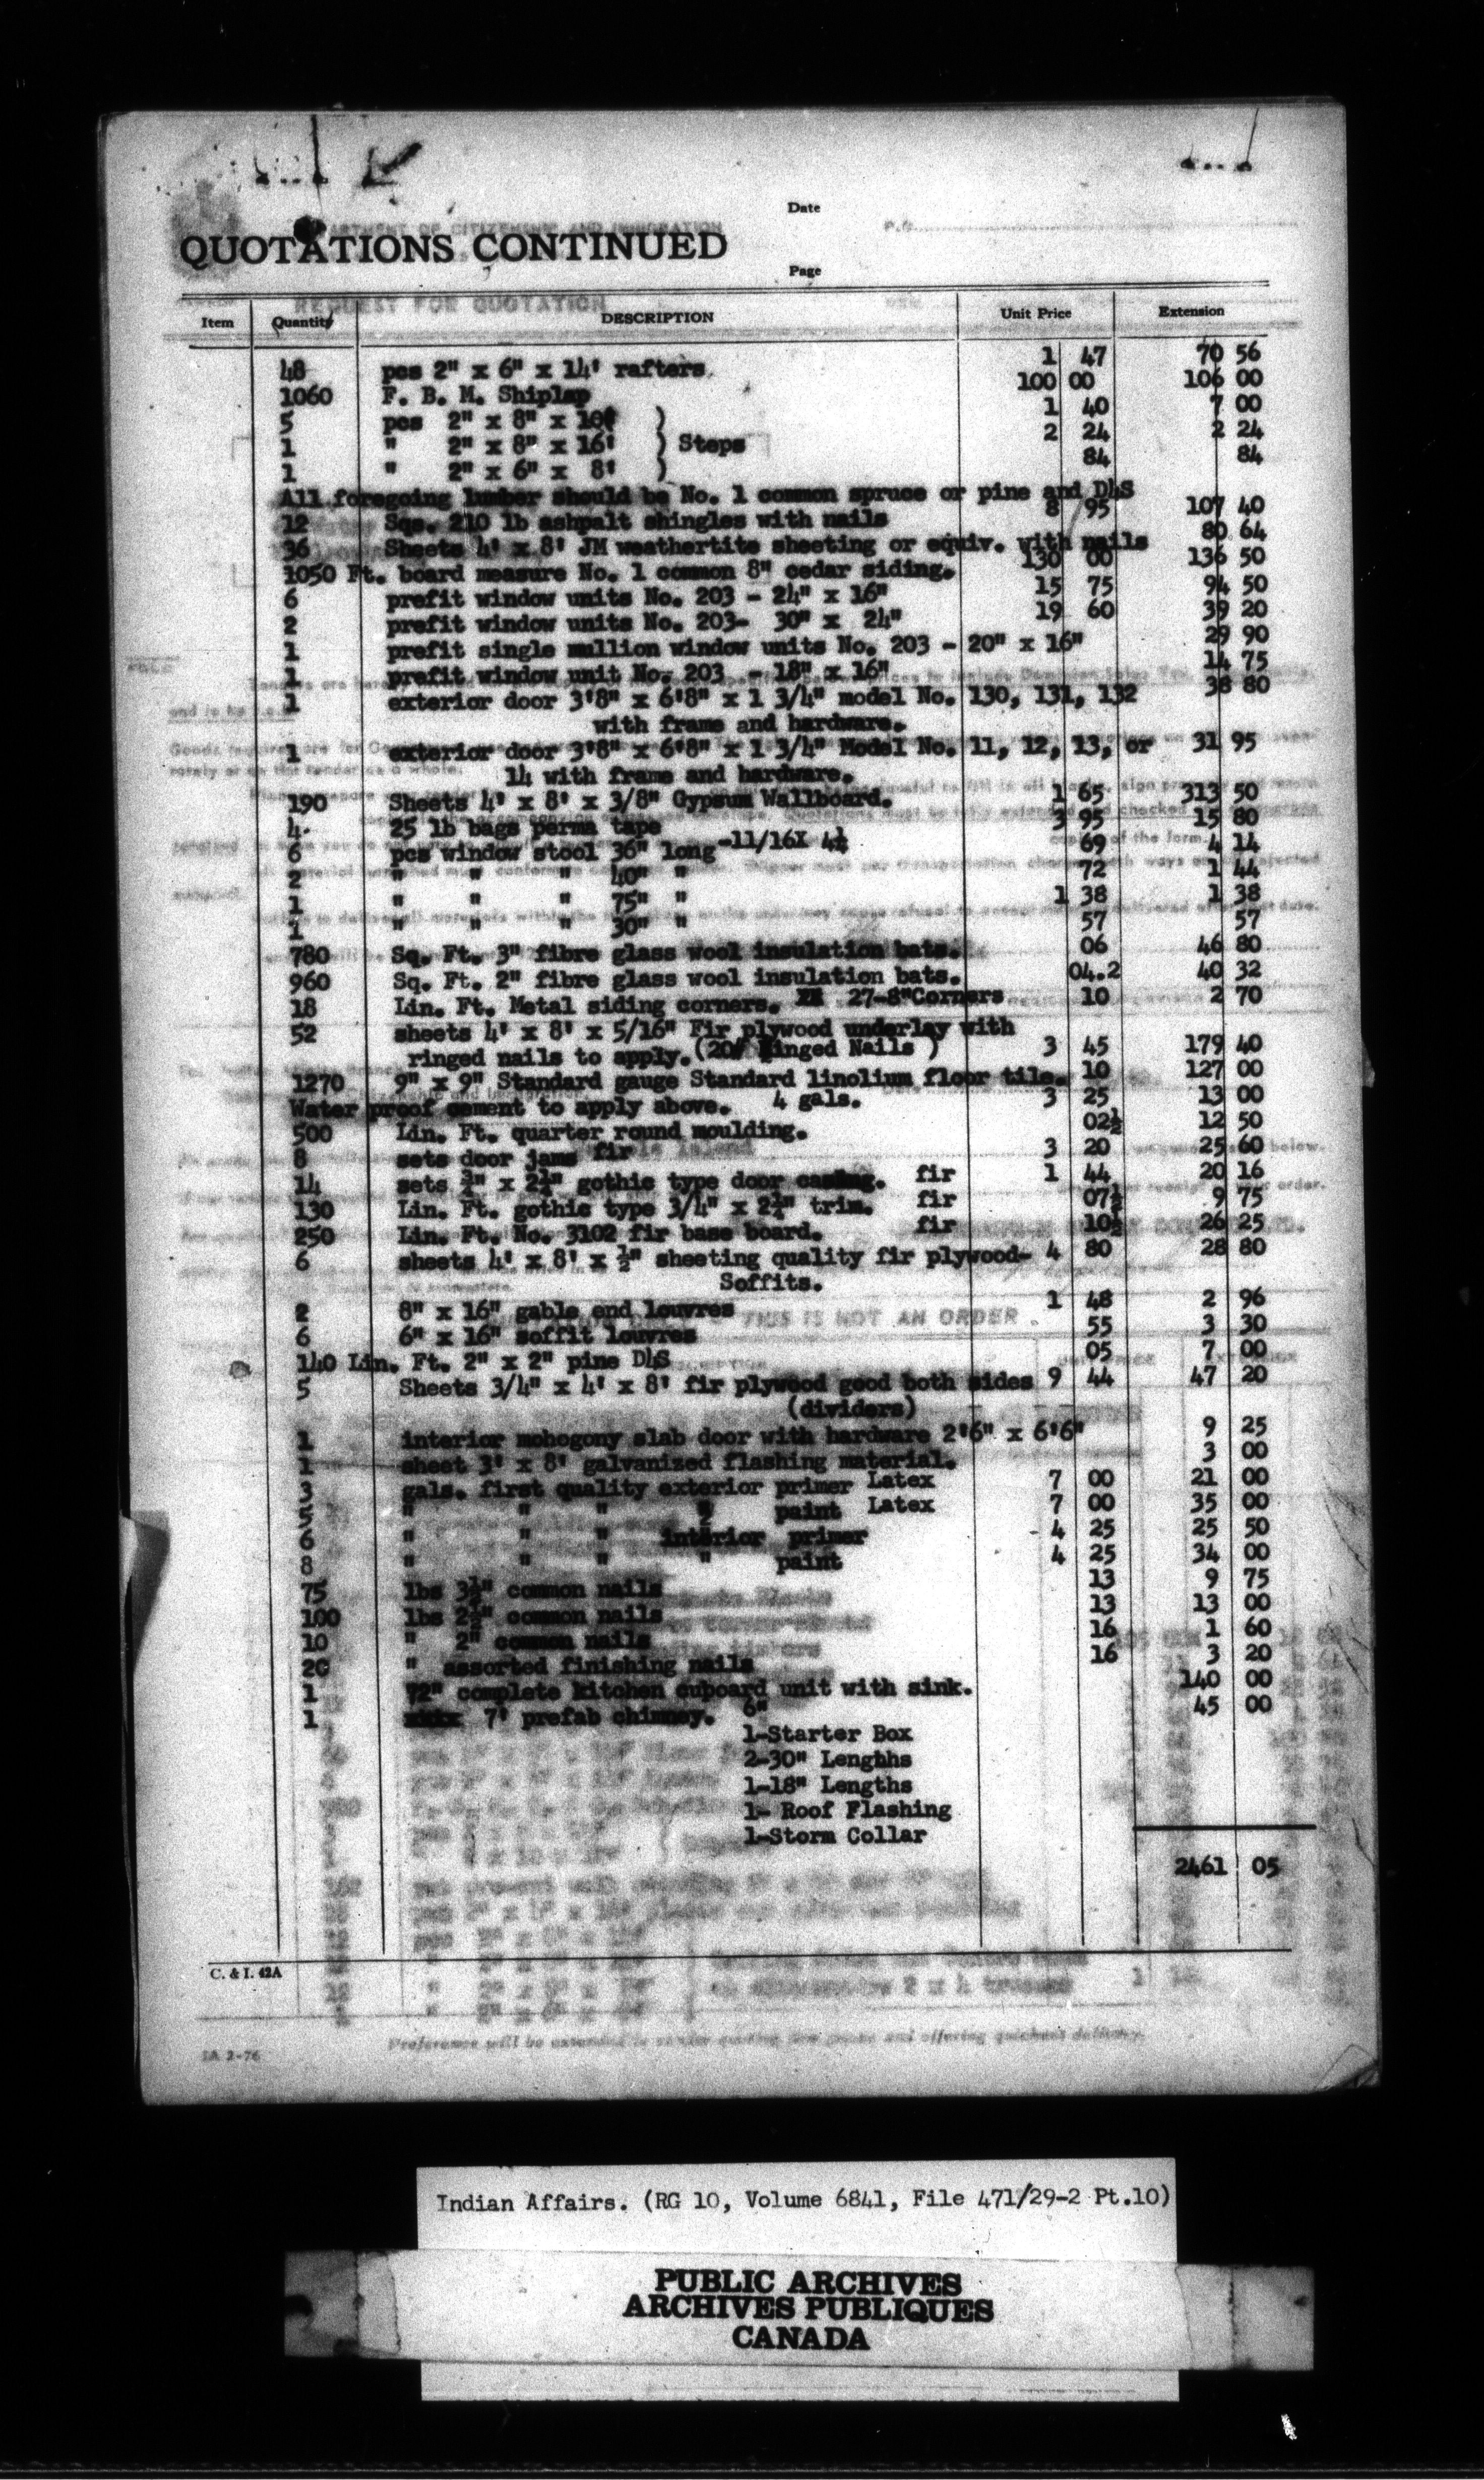 Date
QUOTATIONS CONTINUED
Page
REQUEST FOR QUOTATION
Item Quantity DESCRIPTION Unit Price Extension
48 pcs 2" x 6" x 14' rafters. 1 47 70 56
1060 F. B. M. Shiplap 100 00 106 00
5 pcs 2" x 8" x 10' ) 1 40 7 00
1 " 2" x 8" x 16' ) Steps 2 24 2 24
1 " 2" x 6" x 8' ) 84 84
All foregoing lumber should be No. 1 common spruce or pine and D4S
12 Sqs. 210 lb ashpalt shingles with nails 8 95 107 40
36 Sheets 4' x 8' JM weathertite sheeting or equiv. with nails 80 64
1050 Ft. board measure No. 1 common 8" cedar siding. 130 00 136 50
6 prefit window units No. 203 - 24" x 16" 15 75 94 50
2 prefit window units No. 203- 30" x 24" 19 60 39 20
1 prefit single mullion window units No. 203 - 20" x 16" 29 90
1 prefit window unit No. 203 - 18" x 16" 14 75
1 exterior door 3'8" x 6'8" x 1 3/4" model No. 130, 131, 132 38 80
with frame and hardware.
1 exterior door 3'8" x 6'8" x 1 3/4" Model No. 11, 12, 13, or 31 95
14 with frame and hardware.
190 Sheets 4' x 8' x 3/8" Gypsum Wallboard. 1 65 313 50
4 25 lb bags perma tape 3 95 15 80
6 pcs window stool 36" long -11/16X 4½ 69 4 14
2 " " " 40" " 72 1 44
1 " " " 75" " 1 38 1 38
1 " " " 30" " 57 57
780 Sq. Ft. 3" fibre glass wool insulation bats. 06 46 80
960 Sq. Ft. 2" fibre glass wool insulation bats. 04.2 40 32
18 Lin. Ft. Metal siding corners. 27-8"Corners 10 2 70
52 sheets 4' x 8' x 5/16" Fir plywood underlay with
ringed nails to apply. (20# Ringed Nails ) 3 45 179 40
1270 9" x 9" Standard gauge Standard linolium floor tile. 10 127 00
Water proof cement to apply above. 4 gals. 3 25 13 00
500 Lin. Ft. quarter round moulding. 02½ 12 50
8 sets door jams fir 3 20 25 60
14 sets ¾" x 2¼" gothic type door casing. fir 1 44 20 16
130 Lin. Ft. gothic type 3/4" x 2¼" trim. fir 07½ 9 75
250 Lin. Ft. No. 3102 fir base board. fir 10½ 26 25
6 sheets 4' x 8' x ½" sheeting quality fir plywood- 4 80 28 80
Soffits.
2 8" x 16" gable end louvres 1 48 2 96
THIS IS NOT AN ORDER.
6 6" x 16" soffit louvres 55 3 30
140 Lin. Ft. 2" x 2" pine D4S 05 7 00
5 Sheets 3/4" x 4' x 8' fir plywood good both sides 9 44 47 20
(dividers)
1 interior mohogony slab door with hardware 2'6" x 6'6" 9 25
1 sheet 3' x 8' galvanized flashing material. 3 00
3 gals. first quality exterior primer Latex 7 00 21 00
5 " " " " paint Latex 7 00 35 00
6 " " " interior primer 4 25 25 50
8 " " " " paint 4 25 34 00
75 lbs 3½" common nails 13 9 75
100 lbs 2½" common nails 13 13 00
10 " 2" common nails 16 1 60
20 " assorted finishing nails 16 3 20
1 72" complete kitchen cuboard unit with sink. 140 00
1 7' prefab chimney. 6" 45 00
1-Starter Box
2-30" Lenghhs
1-18" Lengths
1- Roof Flashing
1-Storm Collar
2461 05
C. & I. 42A
Preference will be extended to
and offering quickest delivery.
IA 2-76
Indian Affairs. (RG 10, Volume 6841, File 471/29-2 Pt.10)
PUBLIC ARCHIVES
ARCHIVES PUBLIQUES
CANADA